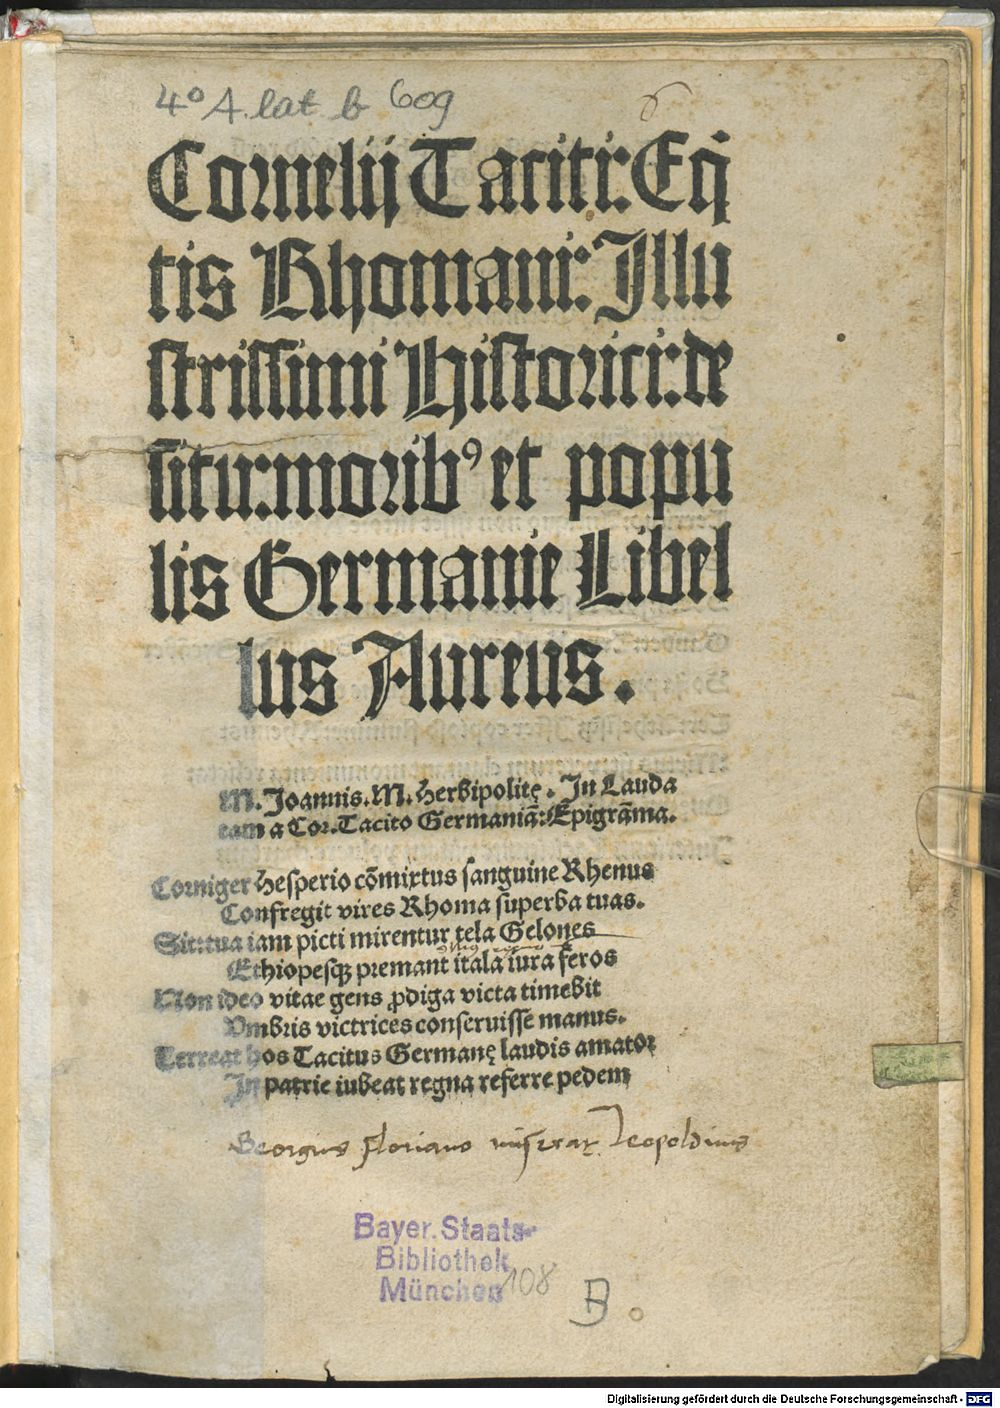 4° A. lat. b 609
Cornelij Taciti: Eq̃
tis Rhomani: Illu
strissimi Historici: de
situ: moribꝰ et popu
lis Germanie Libel
lus Aureus.
M. Joannis. M. Herbipolitę. In Lauda
tam a Cor. Tacito Germaniã: Epigrãma.
Corniger Hesperio cõmixtus sanguine Rhenus
Confregit vires Rhoma superba tuas.
Sit: tua iam picti mirentur tela Gelones
Ethiopesqꝫ premant itala iura feros
Non ideo vitae gens ꝓdiga victa timebit
Vmbris victrices conseruisse manus.
Terreat hos Tacitus Germanę laudis amator
In patrie iubeat regna referre pedem
Georgius Floriano Leopoldinus
Bayer. Staats-
Bibliothek
München
108
B
Digitalisierung gefördert durch die Deutsche Forschungsgemeinschaft - DFG